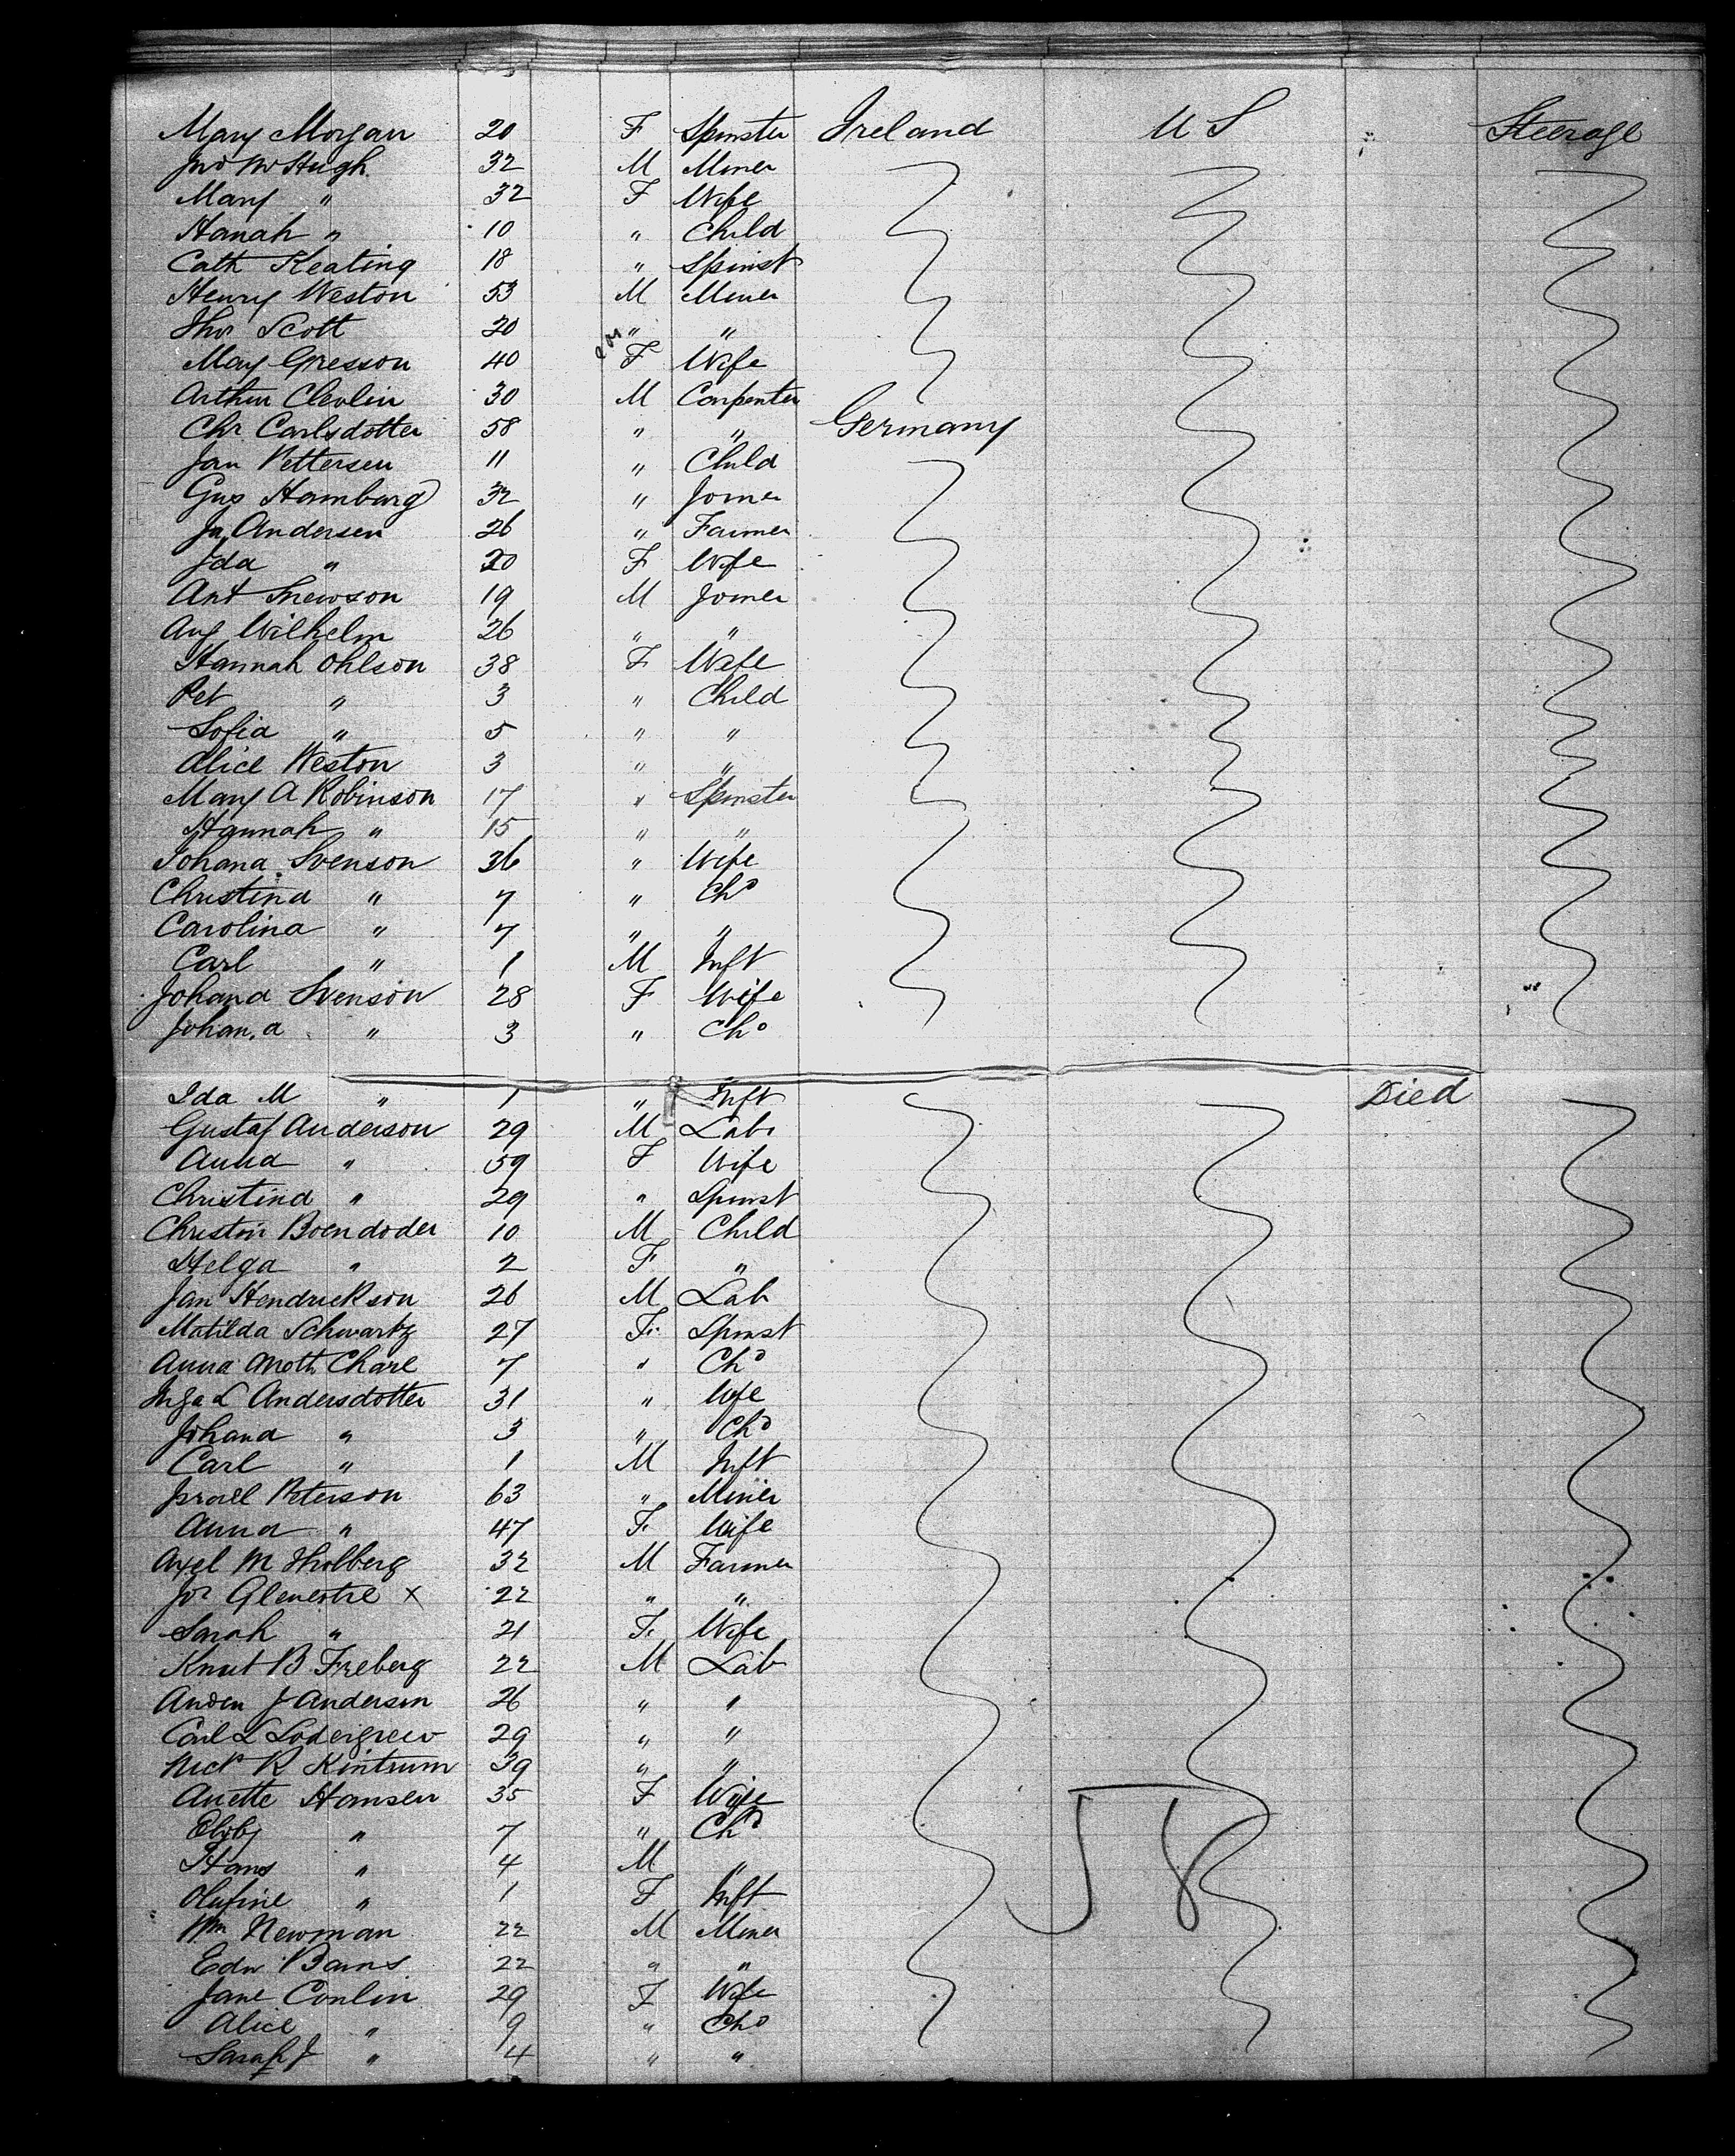 Mary Morgan 20 F Spinster Ireland U S Steerage
Jno McHugh 32 M Miner
Mary " 32 F Wife
Hanah " 10 " Child
Cath Keating 18 " Spinst
Henry Weston 53 M Miner
Thos Scott 20 " "
Mary Gresson 40 F Wife
Arthur Clevlin 30 M Carpenter
Chr Carlsdotter 58 " " Germany
Jan Pettersen 11 " Child
Gus Hamburg 32 " Joiner
Jn Andersen 26 " Farmer
Ida " 20 F Wife
Ant 19 M Joiner
Aug Wilhelm 26 " "
Hannah Ohlson 38 F Wife
Pet " 3 " Child
Sofia " 5 " "
Alice Weston 3 " "
Mary A Robinson 17 " Spinster
Hannah " 15 " "
Johana Svenson 36 " Wife
Christina " 7 " Chd
Carolina " 7 " "
Carl " 1 M Inft
Johana Svenson 28 F Wife
Johan.a " 3 " Chd
Ida M " 1 " Inft Died
Gustaf Anderson 29 M Labr
Anna " 59 F Wife
Christina " 29 " Spinst
Christon Boendoder 10 M Child
Helga " 2 F "
Jan Hendrickson 26 M Lab
Matilda Schwartz 27 F. Spinst
Anna Moth Charl 7 " Chd
Inga L Andersdotter 31 " Wife
Johana " 3 " Chd
Carl " 1 M Inft
Israel Peterson 63 " Miner
Anna " 47 F. Wife
Axel M Tholberg 32 M Farmer
Jos Glenestre x 22 " "
Sarah " 21 F. Wife
Knut B Freberg 22 M Lab
J Anderson 26 " "
Carl L Lodergreen 29 " "
Nick R Kintrum 39 " "
Anette Hansen 35 F Wife
" 7 " Chd
Hans " 4 M "
Olufine " 1 F Inft
Wm Newman 22 M Miner
Edw Barns 22 " "
Jane Conlin 29 F Wife
Alice " 9 " Chd
Sarah J " 4 " "
J 8